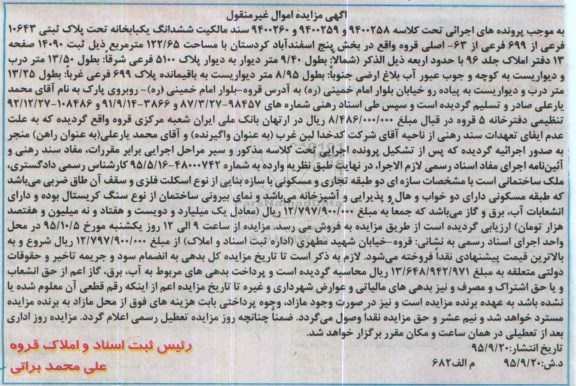 آگهی مزایده اموال غیرمنقول
به موجب پرونده های اجرائی تحت کلاسه ۹۴۰۰۲۵۸ و ۹۴۰۰۲۵۹ و ۹۴۰۰۲۶۰ سند مالکیت ششدانگ یکبابخانه تحت پلاک ثبتی ۱۰۶۴۳
فرعی از ۶۹۹ فرعی از ۶۳- اصلی قروه واقع در بخش پنج اسفندآباد کردستان با مساحت ۱۲۲/۶۵ مترمربع ذیل ثبت ۱۴۰۹۰ صفحه
۱۳ دفتر املاک جلد ۹۶ با حدود اربعه ذیل الذکر (شمالا: بطول ۹/۴۰ متر دیوار به دیوار پلاک ۵۱۰۰ فرعی شرقا: بطول ۱۳/۵۰ متر درب
و دیواریست به کوچه و جوب عبور آب بلاغ ارضی جنوبا: بطول ۸/۹۵ متر دیواریست به باقیمانده پلاک ۶۹۹ فرعی غربا: بطول ۱۳/۲۵
متر درب و دیواریست به پیاده رو خیابان بلوار امام خمینی (ره) به آدرس قروه-بلوار امام خمینی (ره)- روبروی پارک به نام آقای محمد
یارعلی صادر و تسلیم گردیده است و سپس طی اسناد رهنی شماره های ۹۸۴۵۷-۸۷/۳/۲۷ و ۳۸۶۶-۹۱/۹/۱۴ و ۱۰۸۴۸۶-۹۲/۱۲/۲۷
تنظیمی دفترخانه ۵ قروه در قبال مبلغ ۸/۴۸۶/۰۰۰/۰۰۰ ریال در ارتهان بانک ملی ایران شعبه مرکزی قروه واقع گردیده که به علت
عدم ایفای تعهدات سند رهنی از ناحیه آقای شرکت کدخدا لبن غرب (به عنوان واگیرنده) و آقای محمد یارعلی(به عنوان راهن) منجر
به صدور اجرائیه گردیده که پس از تشکیل پرونده اجرایی تحت کلاسه مذکور و سیر مراحل اجرایی برابر مقررات، مفاد سند رهنی و
آئین‌نامه اجرای مفاد اسناد رسمی لازم الاجرا، در نهایت طبق نظریه وارده به شماره ۴۸۰۰۰۷۴۲-۹۵/۵/۱۶ کارشناس رسمی دادگستری،
ملک ساختمانی است با مشخصات سازه ای دو طبقه تجاری و مسکونی با سازه بنایی از نوع اسکلت فلزی و سقف آن طاق ضربی می‌باشد
که طبقه مسکونی دارای دو خواب و هال و پذیرایی و آشپزخانه می‌باشد و نمای بیرونی ساختمان از نوع سنگ کریستال بوده و دارای
انشعابات آب، برق و گاز می‌باشد که جمعا به مبلغ ۱۲/۷۹۷/۹۰۰/۰۰۰ ریال (معادل یک میلیارد و دویست و هفتاد و نه میلیون و هفتصد و نود
هزار تومان) ارزیابی گردیده است از طریق مزایده به فروش می رسد. مزایده از ساعت ۹ الی ۱۲ روز یکشنبه مورخ ۹۵/۱۰/۵ در محل
واحد اجرای اسناد رسمی به نشانی: قروه-خیابان شهید مطهری (اداره ثبت اسناد و املاک) از مبلغ ۱۲/۷۹۷/۹۰۰/۰۰۰ ریال شروع و به
بالاترین قیمت پیشنهادی نقدا فروخته می‌شود. لازم به ذکر است تا تاریخ مزایده کل بدهی به انضمام سود و جریمه تاخیر و حقوقات
دولتی متعلقه به مبلغ ۱۳/۶۴۸/۹۴۲/۹۷۱ ریال محاسبه گردیده است و پرداخت بدهی های مربوط به آب، برق، گاز اعم از حق انشعاب
و یا حق اشتراک و مصرف و نیز بدهی های مالیاتی و عوارض شهرداری و غیره تا تاریخ مزایده اعم از اینکه رقم قطعی آن معلوم شده یا
نشده باشد به عهده برنده مزایده است و نیز در صورت وجود مازاد، وجوه پرداختی بابت هزینه های فوق از محل مازاد به برنده مزایده
مسترد خواهد شد و نیم عشر و حق مزایده نقدا وصول می‌گردد. ضمنا چنانچه روز مزایده تعطیل رسمی اعلام گردد. مزایده روز اداری
بعد از تعطیلی در همان ساعت و مکان مقرر برگزار خواهد شد.
تاریخ انتشار: ۹۵/۹/۲۰
د.ش: ۹۵/۹/۲۰ م الف ۶۸۲
رئیس ثبت اسناد و املاک قروه
علی محمد براتی